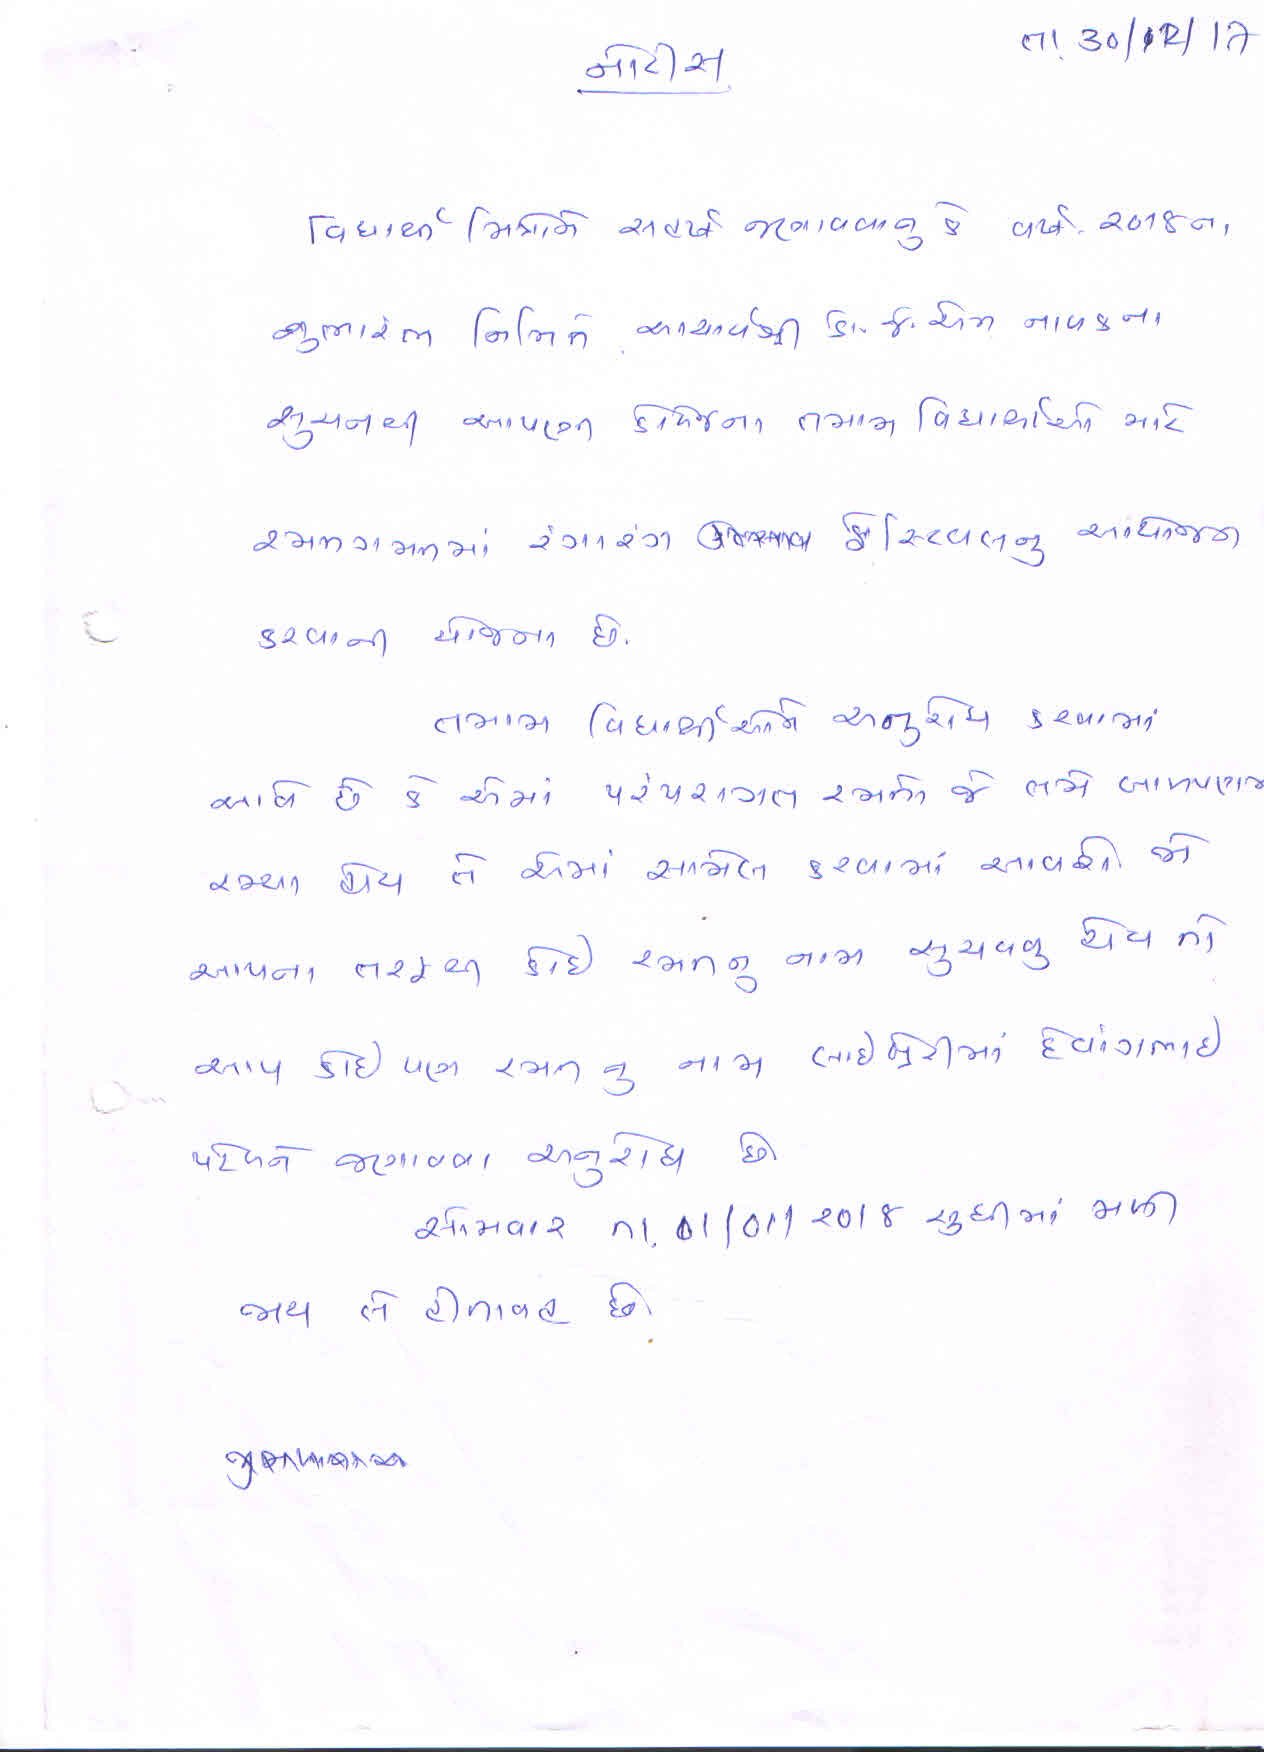 તા. 30/12/17
નોટીસ
વિદ્યાર્થી મિત્રોને સહર્ષ જણાવવાનુ કે વર્ષ. ૨૦૧૮ના
શુભારંભ નિમિતે આચાર્યશ્રી ડો. જે. એમ નાયકના
સુચનથી આપણી કોલેજના તમામ વિદ્યાર્થીઓ માટે
રમતગમતમાં રંગારંગ ફેસ્ટિવલનુ આયોજન
કરવાની યોજના છે.
તમામ વિદ્યાર્થીઓને અનુરોધ કરવામાં
આવે છે કે એમાં પરંપરાગત રમતો જે તમે બાળપણમાં
રમ્યા હોય તે એમાં સામેલ કરવામાં આવશે. જો
આપના તરફથી કોઈ રમતનુ નામ સુચવવુ હોય તો
આપ કોઈ પણ રમતનુ નામ લાઈબ્રેરીમાં દેવાંગભાઈ
પટેલને જણાવવા અનુરોધ છે.
સોમવાર તા. 01/01/2018 સુધીમાં મળી
જાય તે હીતાવહ છે.